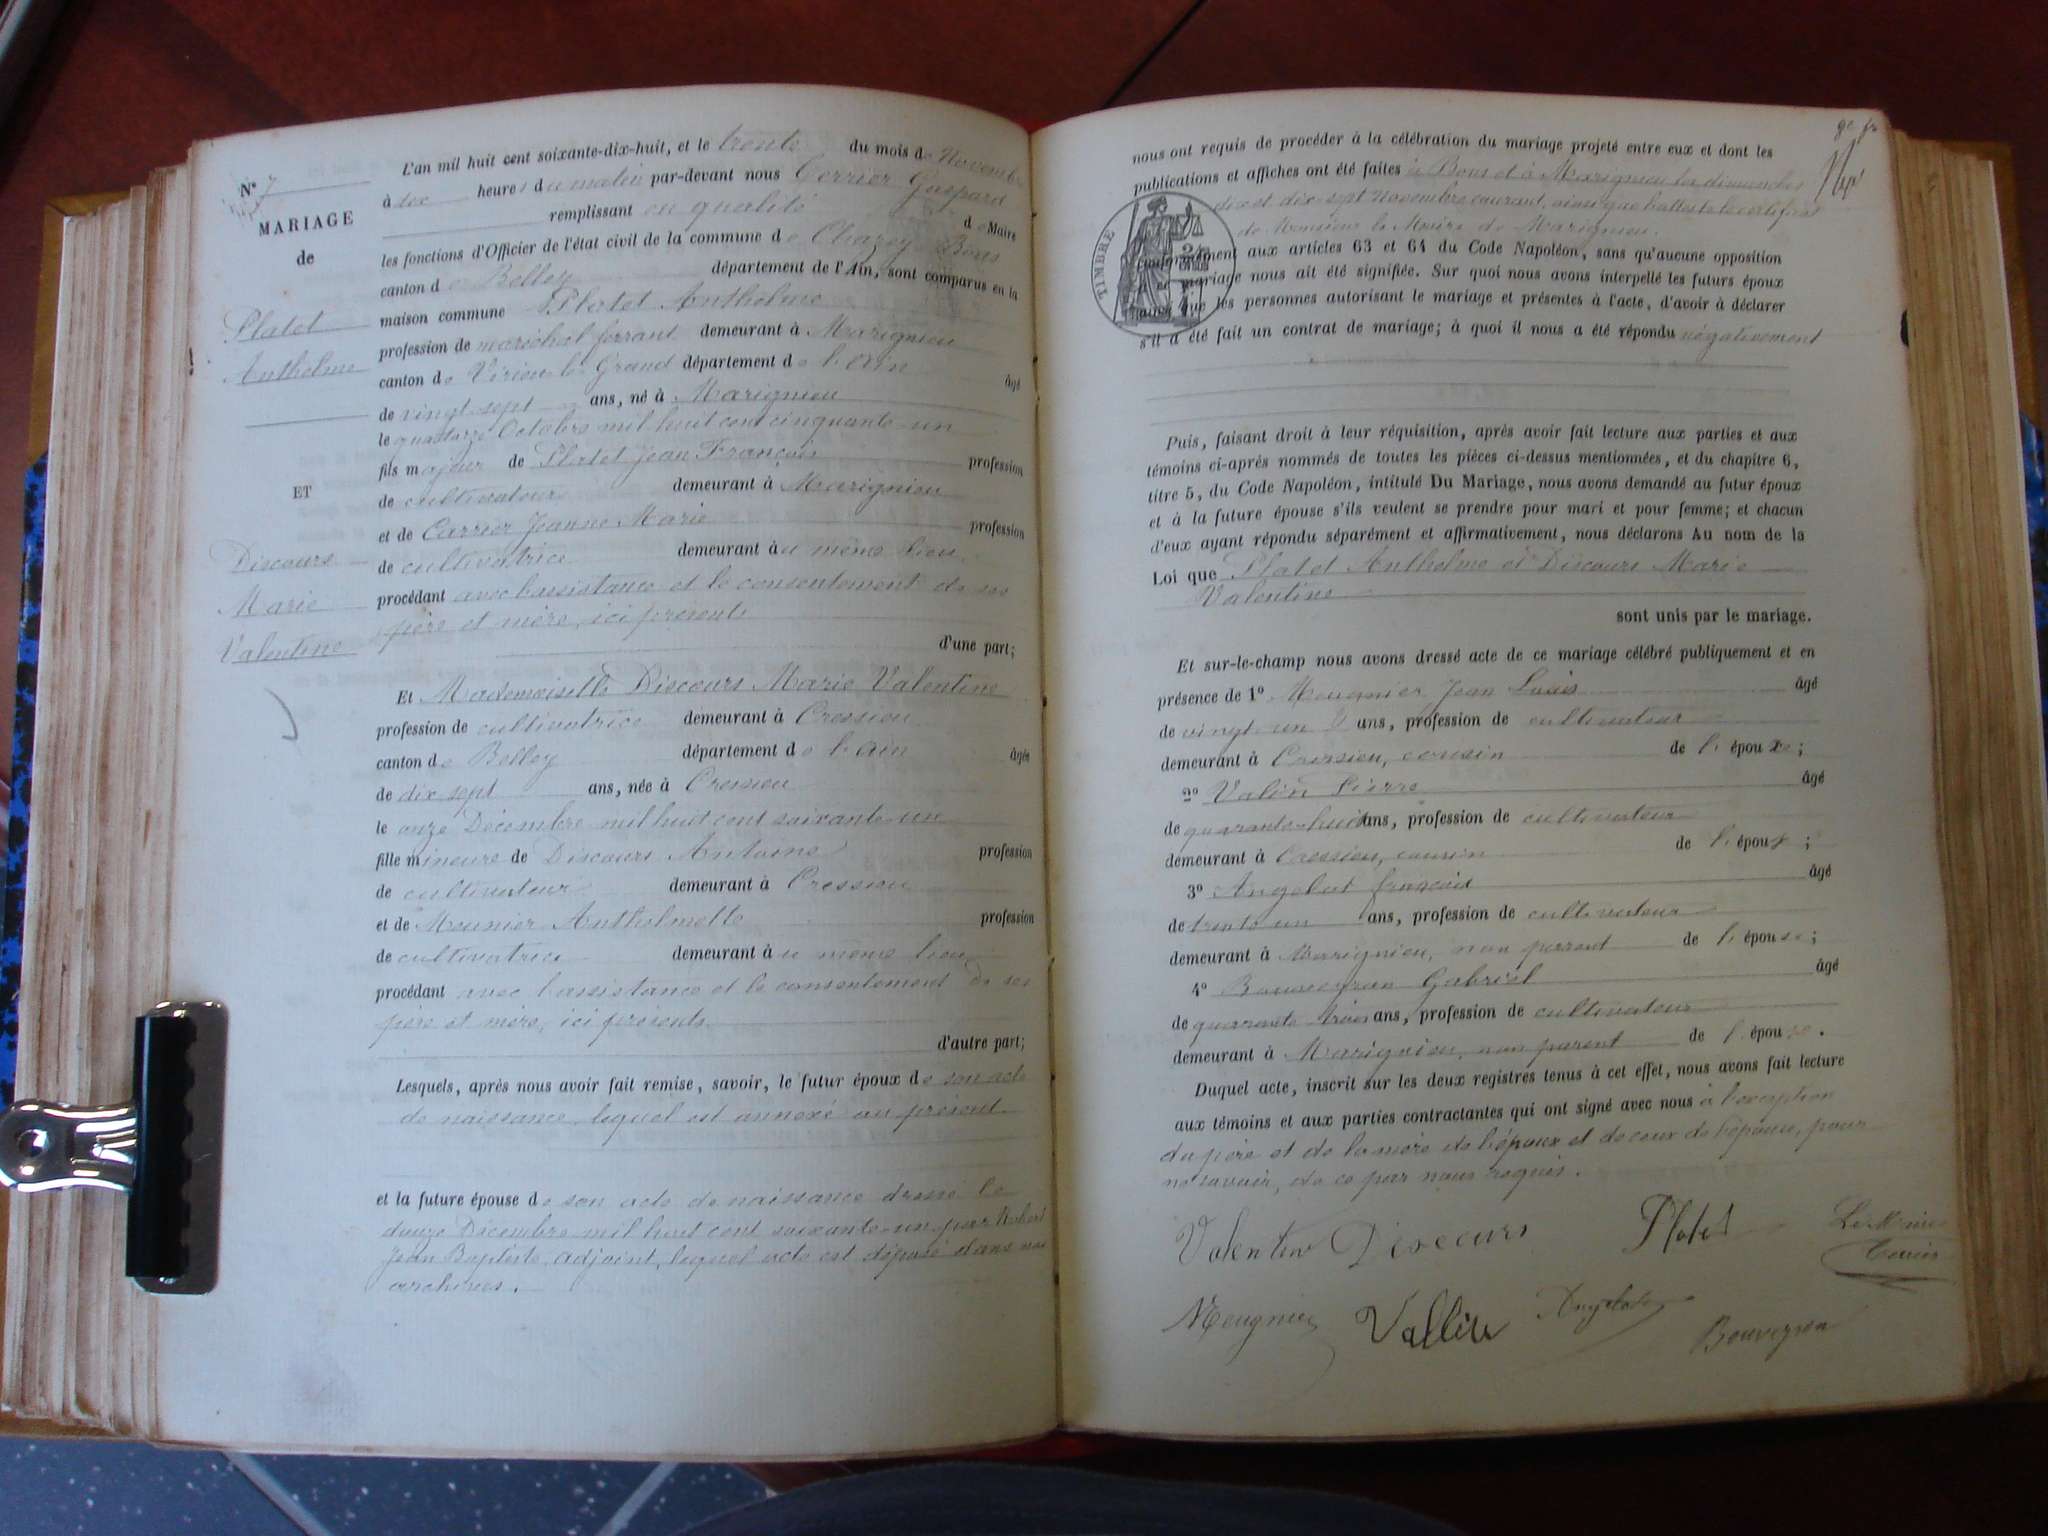 N° 7
MARIAGE
de
Platet
Anthelme
ET
Discours
Marie
Valentine
L'an mil huit cent soixante-dix-huit, et le trente du mois de Novembre
à dix heures du matin par-devant nous Gaspard
remplissant en qualité de Maire
les fonctions d'Officier de l'état civil de la commune de Chazey-Bons
canton de Belley département de l'Ain, sont comparus en la
maison commune Platet Anthelme
profession de maréchal ferrant demeurant à Marignieu
canton de Virieu-le-Grand département de l'Ain âgé
de vingt sept ans, né à Marignieu
le quatorze Octobre mil huit cent cinquante-un
fils majeur de Platet Jean François profession
de cultivateur demeurant à Marignieu
et de Carrier Jeanne Marie profession
de cultivatrice demeurant au même lieu
procédant avec l'assistance et le consentement de ses
père et mère, ici présents
d'une part;
Et Mademoiselle Discours Marie Valentine
profession de cultivatrice demeurant à Cressieu
canton de Belley département de l'Ain âgée
de dix sept ans, née à Cressieu
le onze Décembre mil huit cent soixante-un
fille mineure de Discours Antoine profession
de cultivateur demeurant à Cressieu
et de Meunier Anthelmette profession
de cultivatrice demeurant au même lieu
procédant avec l'assistance et le consentement de ses
père et mère, ici présents
d'autre part;
Lesquels, après nous avoir fait remise, savoir, le futur époux de son acte
de naissance, lequel est annexé au présent
et la future épouse de son acte de naissance dressé le
douze Décembre mil huit cent soixante-un par
Jean Baptiste, adjoint, lequel acte est déposé dans nos
archives.
nous ont requis de procéder à la célébration du mariage projeté entre eux et dont les
publications et affiches ont été faites à Bons et à Marignieu les dimanches
dix et dix-sept Novembre courant, ainsi que l'atteste le certificat
de Monsieur le Maire de Marignieu.
TIMBRE
conformément aux articles 63 et 64 du Code Napoléon, sans qu'aucune opposition
à ce mariage nous ait été signifiée. Sur quoi nous avons interpellé les futurs époux
ainsi que les personnes autorisant le mariage et présentes à l'acte, d'avoir à déclarer
s'il a été fait un contrat de mariage; à quoi il nous a été répondu négativement
Puis, faisant droit à leur réquisition, après avoir fait lecture aux parties et aux
témoins ci-après nommés de toutes les pièces ci-dessus mentionnées, et du chapitre 6,
titre 5, du Code Napoléon, intitulé Du Mariage, nous avons demandé au futur époux
et à la future épouse s'ils veulent se prendre pour mari et pour femme; et chacun
d'eux ayant répondu séparément et affirmativement, nous déclarons Au nom de la
Loi que Platet Anthelme et Discours Marie
Valentine
sont unis par le mariage.
Et sur-le-champ nous avons dressé acte de ce mariage célébré publiquement et en
présence de 1° Meugnier Jean Louis âgé
de vingt un ans, profession de cultivateur
demeurant à Cressieu, cousin de l'épouse;
2° Valin Pierre âgé
de quarante-huit ans, profession de cultivateur
demeurant à Cressieu, cousin de l'époux;
3° Angelot françois âgé
de trente un ans, profession de cultivateur
demeurant à Marignieu, non parent de l'épouse;
4° Bouveyron Gabriel âgé
de quarante trois ans, profession de cultivateur
demeurant à Marignieu, non parent de l'épouse.
Duquel acte, inscrit sur les deux registres tenus à cet effet, nous avons fait lecture
aux témoins et aux parties contractantes qui ont signé avec nous à l'exception
du père et de la mère de l'époux et de ceux de l'épouse, pour
ne savoir, de ce par nous requis.
Valentine Discours Platet Le Maire
Meugnier Vallin Angelot Bouveyron